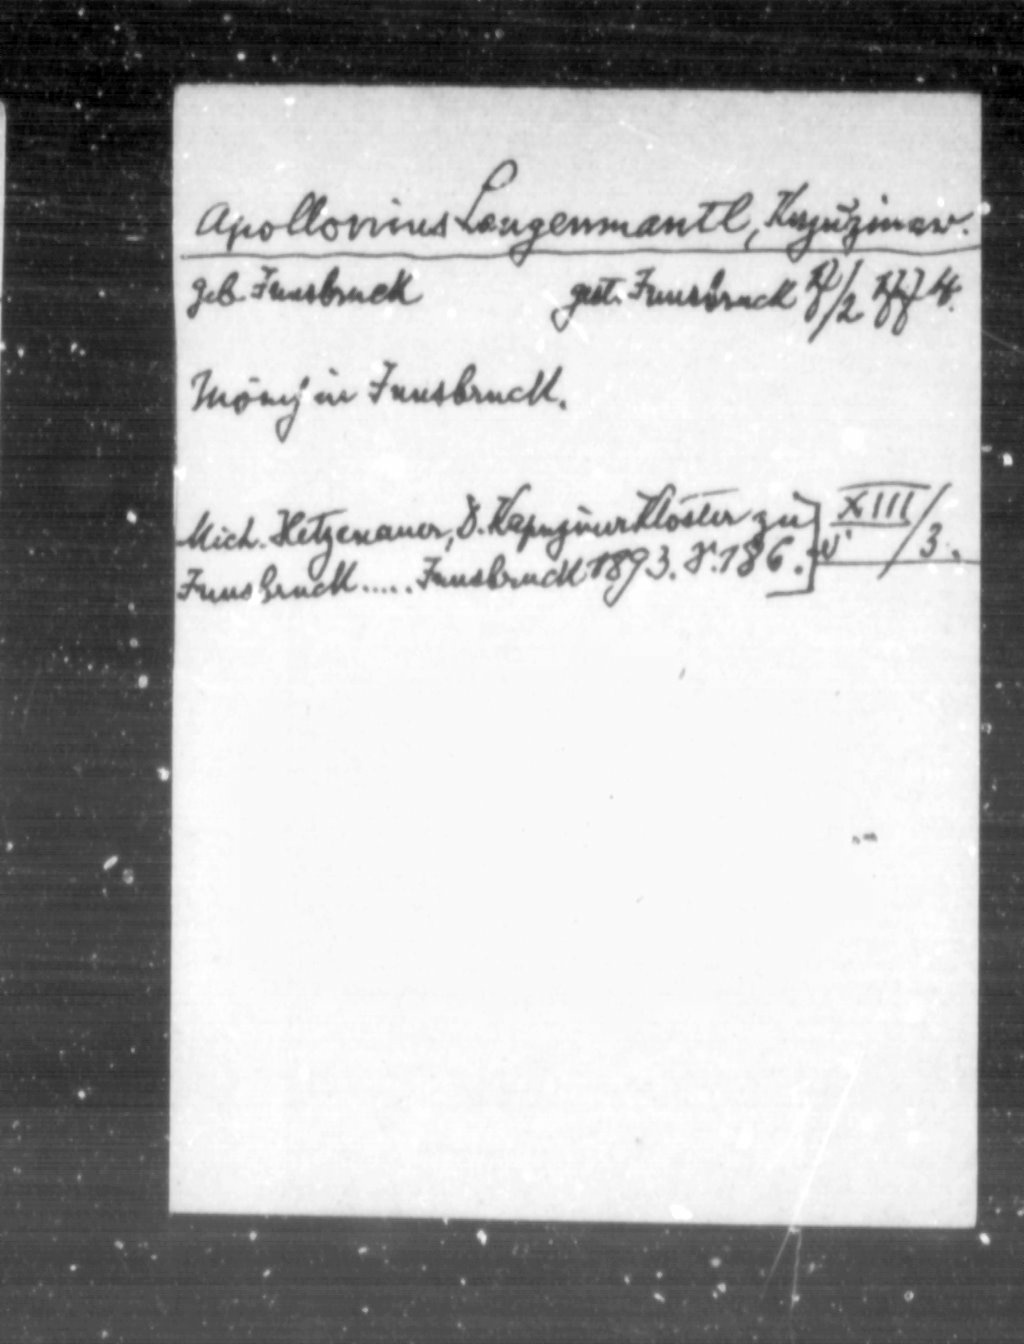 Apollonius Langenmantl, Kapuziner.
geb. Innsbruck gest. Innsbruck
Mönch in Innsbruck.
Mich. Hetzenauer, D. Kapuziner Kloster zu
Innsbruck ..... Innsbruck 1893. S. 186.
XIII/3.